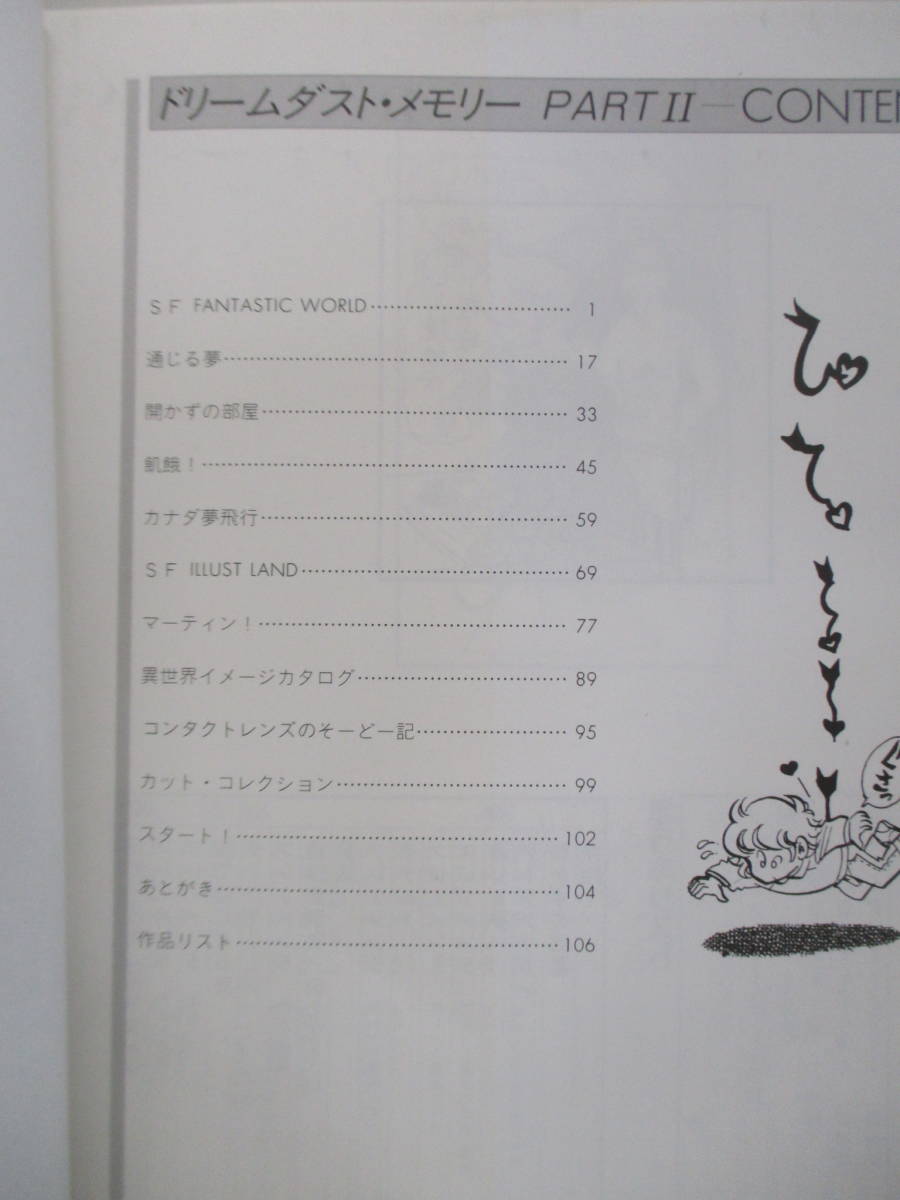 ドリームダスト・メモリー PART II—CONTEN
SF FANTASTIC WORLD…………………………… 1
通じる夢……………………………………………… 17
開かずの部屋………………………………………… 33
飢餓！………………………………………………… 45
カナダ夢飛行………………………………………… 59
SF ILLUST LAND…………………………………… 69
マーティン！………………………………………… 77
異世界イメージカタログ…………………………… 89
コンタクトレンズのそーどー記…………………… 95
カット・コレクション……………………………… 99
スタート！…………………………………………… 102
あとがき……………………………………………… 104
作品リスト…………………………………………… 106